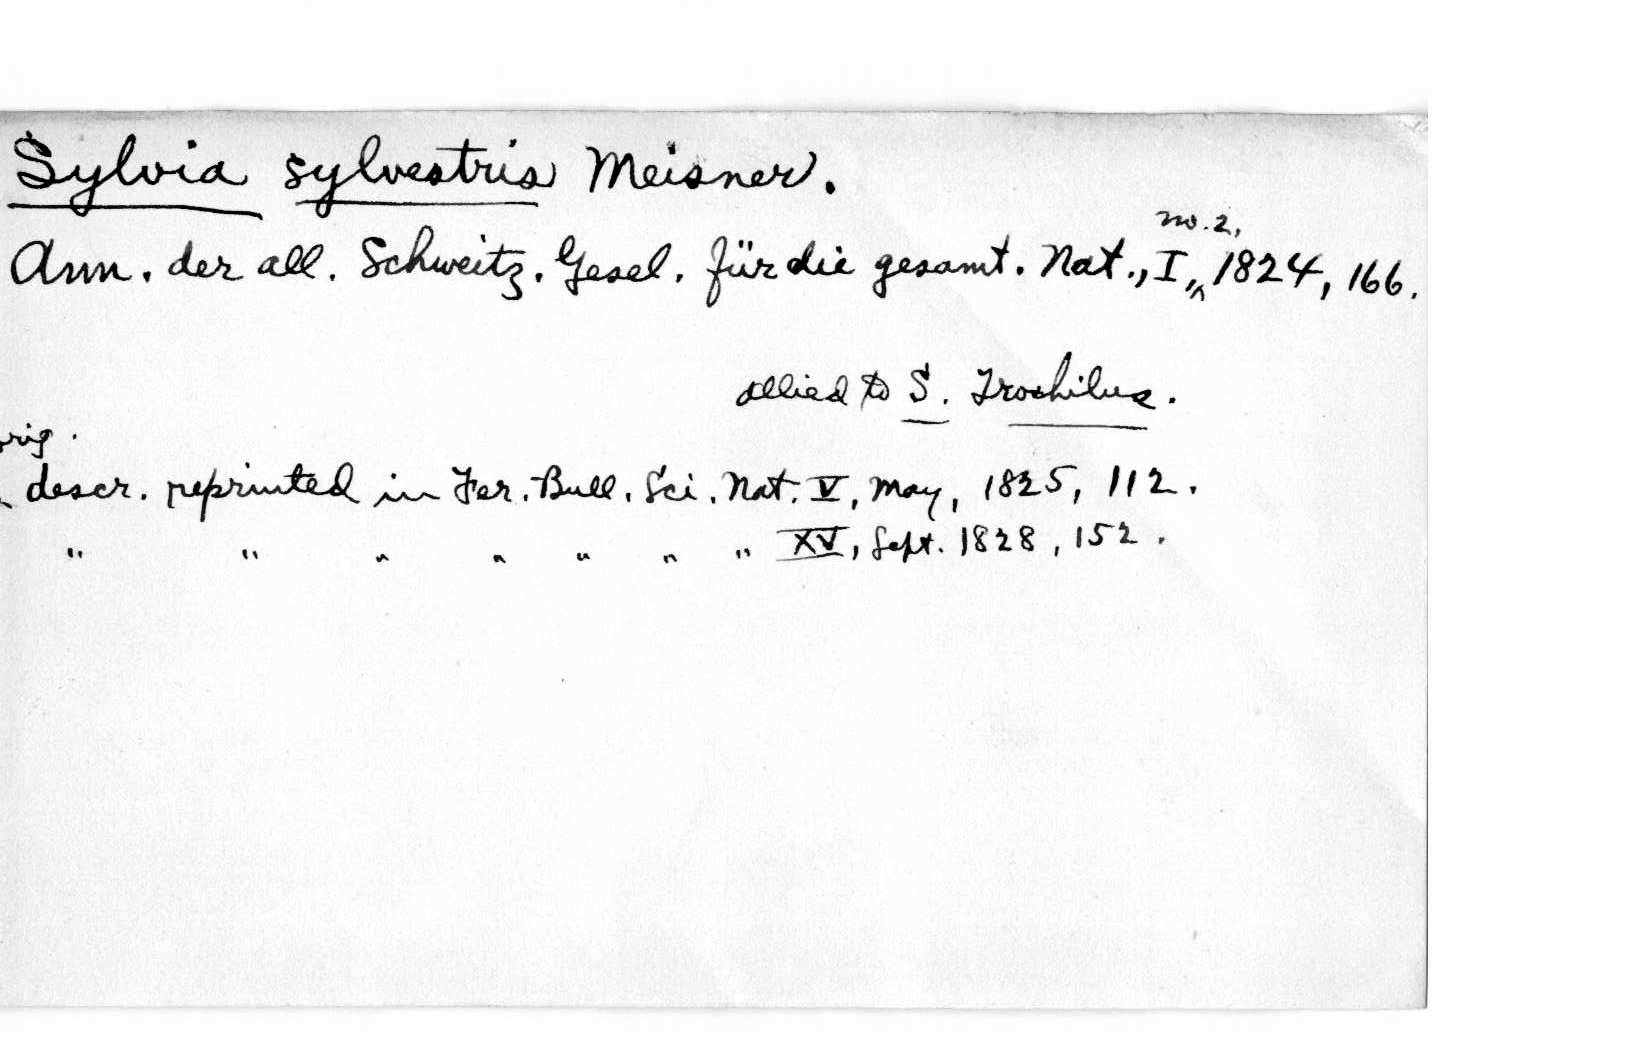 Sylvia sylvestris Meisner.
no. 2,
Ann. der all. Schweitz. Gesel. für die gesamt. Nat., I, 1824, 166.
allied to S. Trochilus.
orig.
descr. reprinted in Fer. Bull. Sci. Nat. V, May, 1825, 112.
" " " " " " " XV, Sept. 1828, 152.